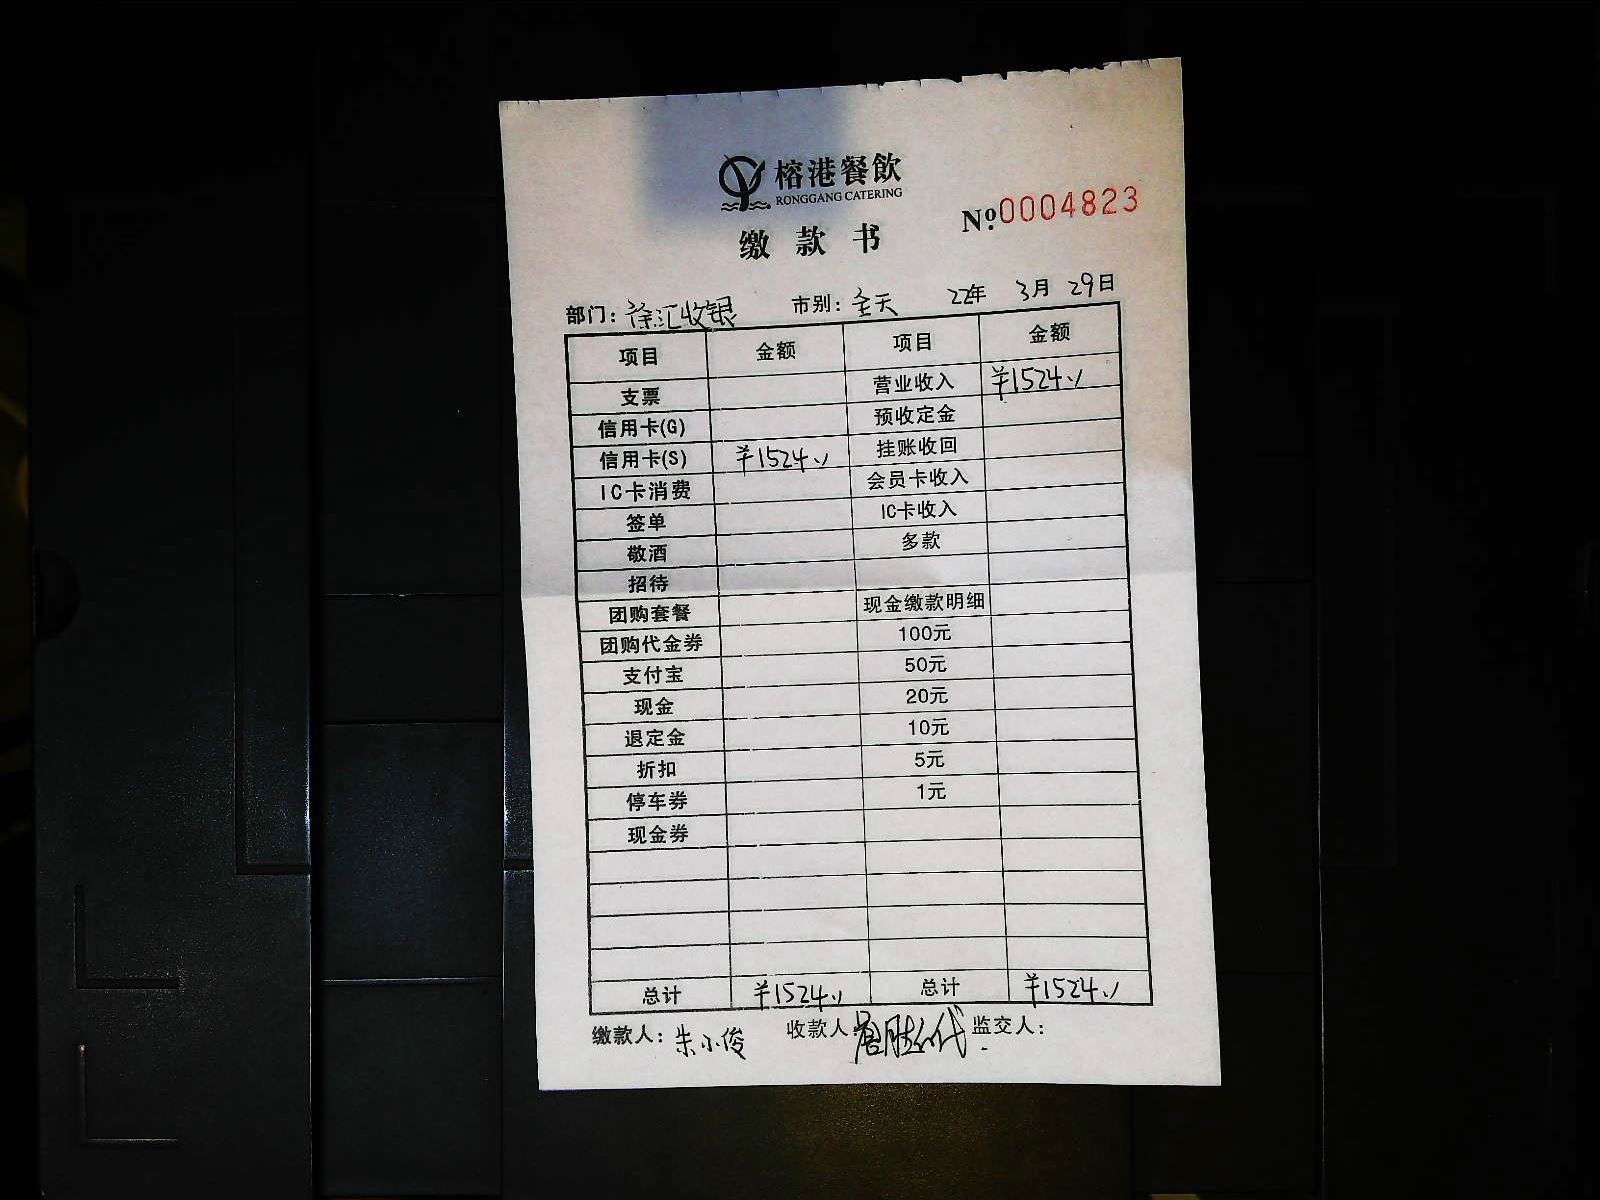 榕港餐飲
RONGGANG CATERING
№ 0004823
缴款书
部门：徐汇收银 市别：全天 22年 3月 29日
项目 金额 项目 金额
支票 营业收入 ¥1524.√
信用卡(G) 预收定金
信用卡(S) ¥1524.√ 挂账收回
IC卡消费 会员卡收入
签单 IC卡收入
敬酒 多款
招待
团购套餐 现金缴款明细
团购代金券 100元
支付宝 50元
现金 20元
退定金 10元
折扣 5元
停车券 1元
现金券
总计 ¥1524.√ 总计 ¥1524.√
缴款人：朱小俊 收款人： 监交人：